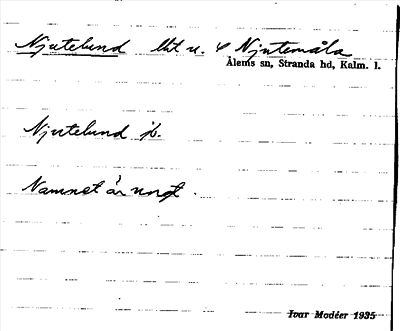 Njutelund lht u. Njutemåla
Ålems sn, Stranda hd, Kalm. l.
Njutelund
Namnet är ungt.
Ivar Modéer 1935